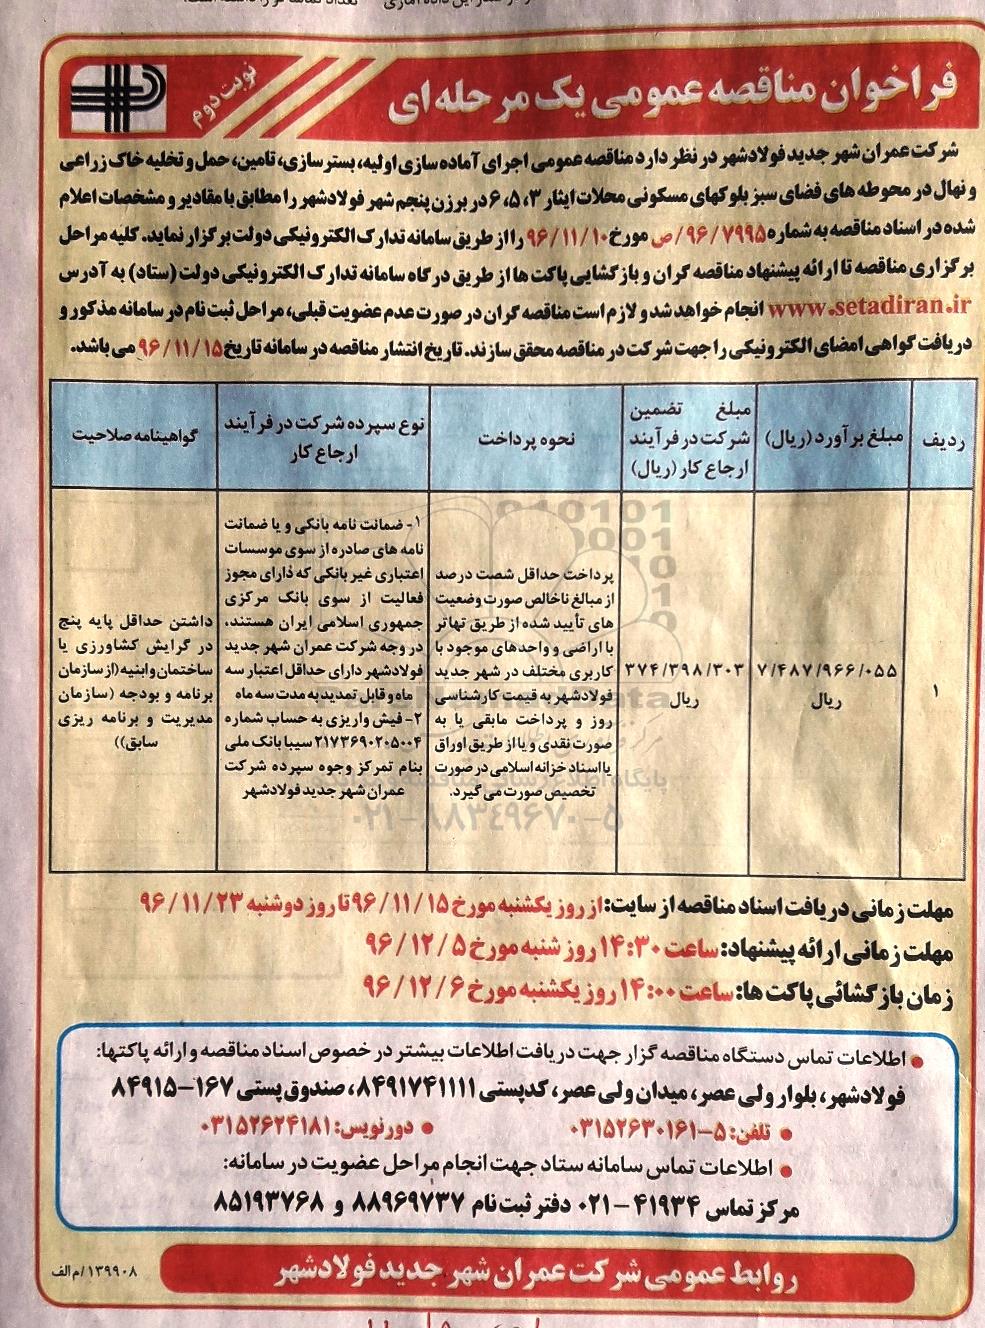 فراخوان مناقصه عمومی یک مرحله ای
نوبت دوم
شرکت عمران شهر جدید فولادشهر در نظر دارد مناقصه عمومی اجرای آماده سازی اولیه، بستر سازی، تامین، حمل و تخلیه خاک زراعی
و نهال در محوطه های فضای سبز بلوکهای مسکونی محلات ایثار ۳، ۵، ۶ در برزن پنجم شهر فولادشهر را مطابق با مقادیر و مشخصات اعلام
شده در اسناد مناقصه به شماره ۹۶/۷۹۹۵/ص مورخ ۹۶/۱۱/۱۰ را از طریق سامانه تدارک الکترونیکی دولت برگزار نماید. کلیه مراحل
برگزاری مناقصه تا ارائه پیشنهاد مناقصه گران و بازگشایی پاکت ها از طریق درگاه سامانه تدارک الکترونیکی دولت (ستاد) به آدرس
www.setadiran.ir انجام خواهد شد و لازم است مناقصه گران در صورت عدم عضویت قبلی، مراحل ثبت نام در سامانه مذکور و
دریافت گواهی امضای الکترونیکی را جهت شرکت در مناقصه محقق سازند. تاریخ انتشار مناقصه در سامانه تاریخ ۹۶/۱۱/۱۵ می باشد.
ردیف
مبلغ برآورد (ریال)
مبلغ تضمین
شرکت در فرآیند
ارجاع کار (ریال)
نحوه پرداخت
نوع سپرده شرکت در فرآیند
ارجاع کار
گواهینامه صلاحیت
۱
۷/۴۸۷/۹۶۶/۰۵۵
ریال
۳۷۴/۳۹۸/۳۰۳
ریال
پرداخت حداقل شصت درصد
از مبالغ ناخالص صورت وضعیت
های تأیید شده از طریق تهاتر
با اراضی و واحدهای موجود با
کاربری مختلف در شهر جدید
فولادشهر به قیمت کارشناسی
روز و پرداخت مابقی یا به
صورت نقدی و یا از طریق اوراق
یا اسناد خزانه اسلامی در صورت
تخصیص صورت می گیرد.
۱- ضمانت نامه بانکی و یا ضمانت
نامه های صادره از سوی موسسات
اعتباری غیر بانکی که دارای مجوز
فعالیت از سوی بانک مرکزی
جمهوری اسلامی ایران هستند،
در وجه شرکت عمران شهر جدید
فولادشهر دارای حداقل اعتبار سه
ماه و قابل تمدید به مدت سه ماه
۲- فیش واریزی به حساب شماره
۲۱۷۳۶۹۰۲۰۵۰۰۴ سیبا بانک ملی
بنام تمرکز وجوه سپرده شرکت
عمران شهر جدید فولادشهر
داشتن حداقل پایه پنج
در گرایش کشاورزی یا
ساختمان و ابنیه ((از سازمان
برنامه و بودجه (سازمان
مدیریت و برنامه ریزی
سابق))
پایگاه اطلاع رسانی مناقصه و مزایده
۰۲۱-۸۸۳۴۹۶۷۰-۵
مهلت زمانی دریافت اسناد مناقصه از سایت: از روز یکشنبه مورخ ۹۶/۱۱/۱۵ تا روز دوشنبه ۹۶/۱۱/۲۳
مهلت زمانی ارائه پیشنهاد: ساعت ۱۴:۳۰ روز شنبه مورخ ۹۶/۱۲/۵
زمان بازگشائی پاکت ها: ساعت ۱۴:۰۰ روز یکشنبه مورخ ۹۶/۱۲/۶
• اطلاعات تماس دستگاه مناقصه گزار جهت دریافت اطلاعات بیشتر در خصوص اسناد مناقصه و ارائه پاکتها:
فولادشهر، بلوار ولی عصر، میدان ولی عصر، کدپستی ۸۴۹۱۷۴۱۱۱۱، صندوق پستی ۱۶۷-۸۴۹۱۵
• تلفن: ۵-۰۳۱۵۲۶۳۰۱۶۱ • دورنویس: ۰۳۱۵۲۶۲۴۱۸۱
• اطلاعات تماس سامانه ستاد جهت انجام مراحل عضویت در سامانه:
مرکز تماس ۴۱۹۳۴-۰۲۱ دفتر ثبت نام ۸۸۹۶۹۷۳۷ و ۸۵۱۹۳۷۶۸
روابط عمومی شرکت عمران شهر جدید فولادشهر
۱۳۹۹۰۸/م الف